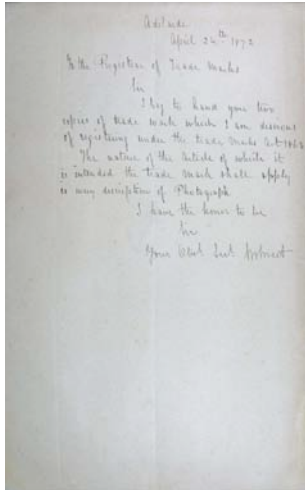 Adelaide
April 24th 1873
To the Registrar of Trade Marks
Sir
I beg to hand you two
copies of trade mark which I am desirous
of registering under the trade Marks Act 1863
The nature of the Article of which it
is intended the trade mark shall apply
is any description of Photograph
I have the honor to be
Sir
Your Obdt Servt